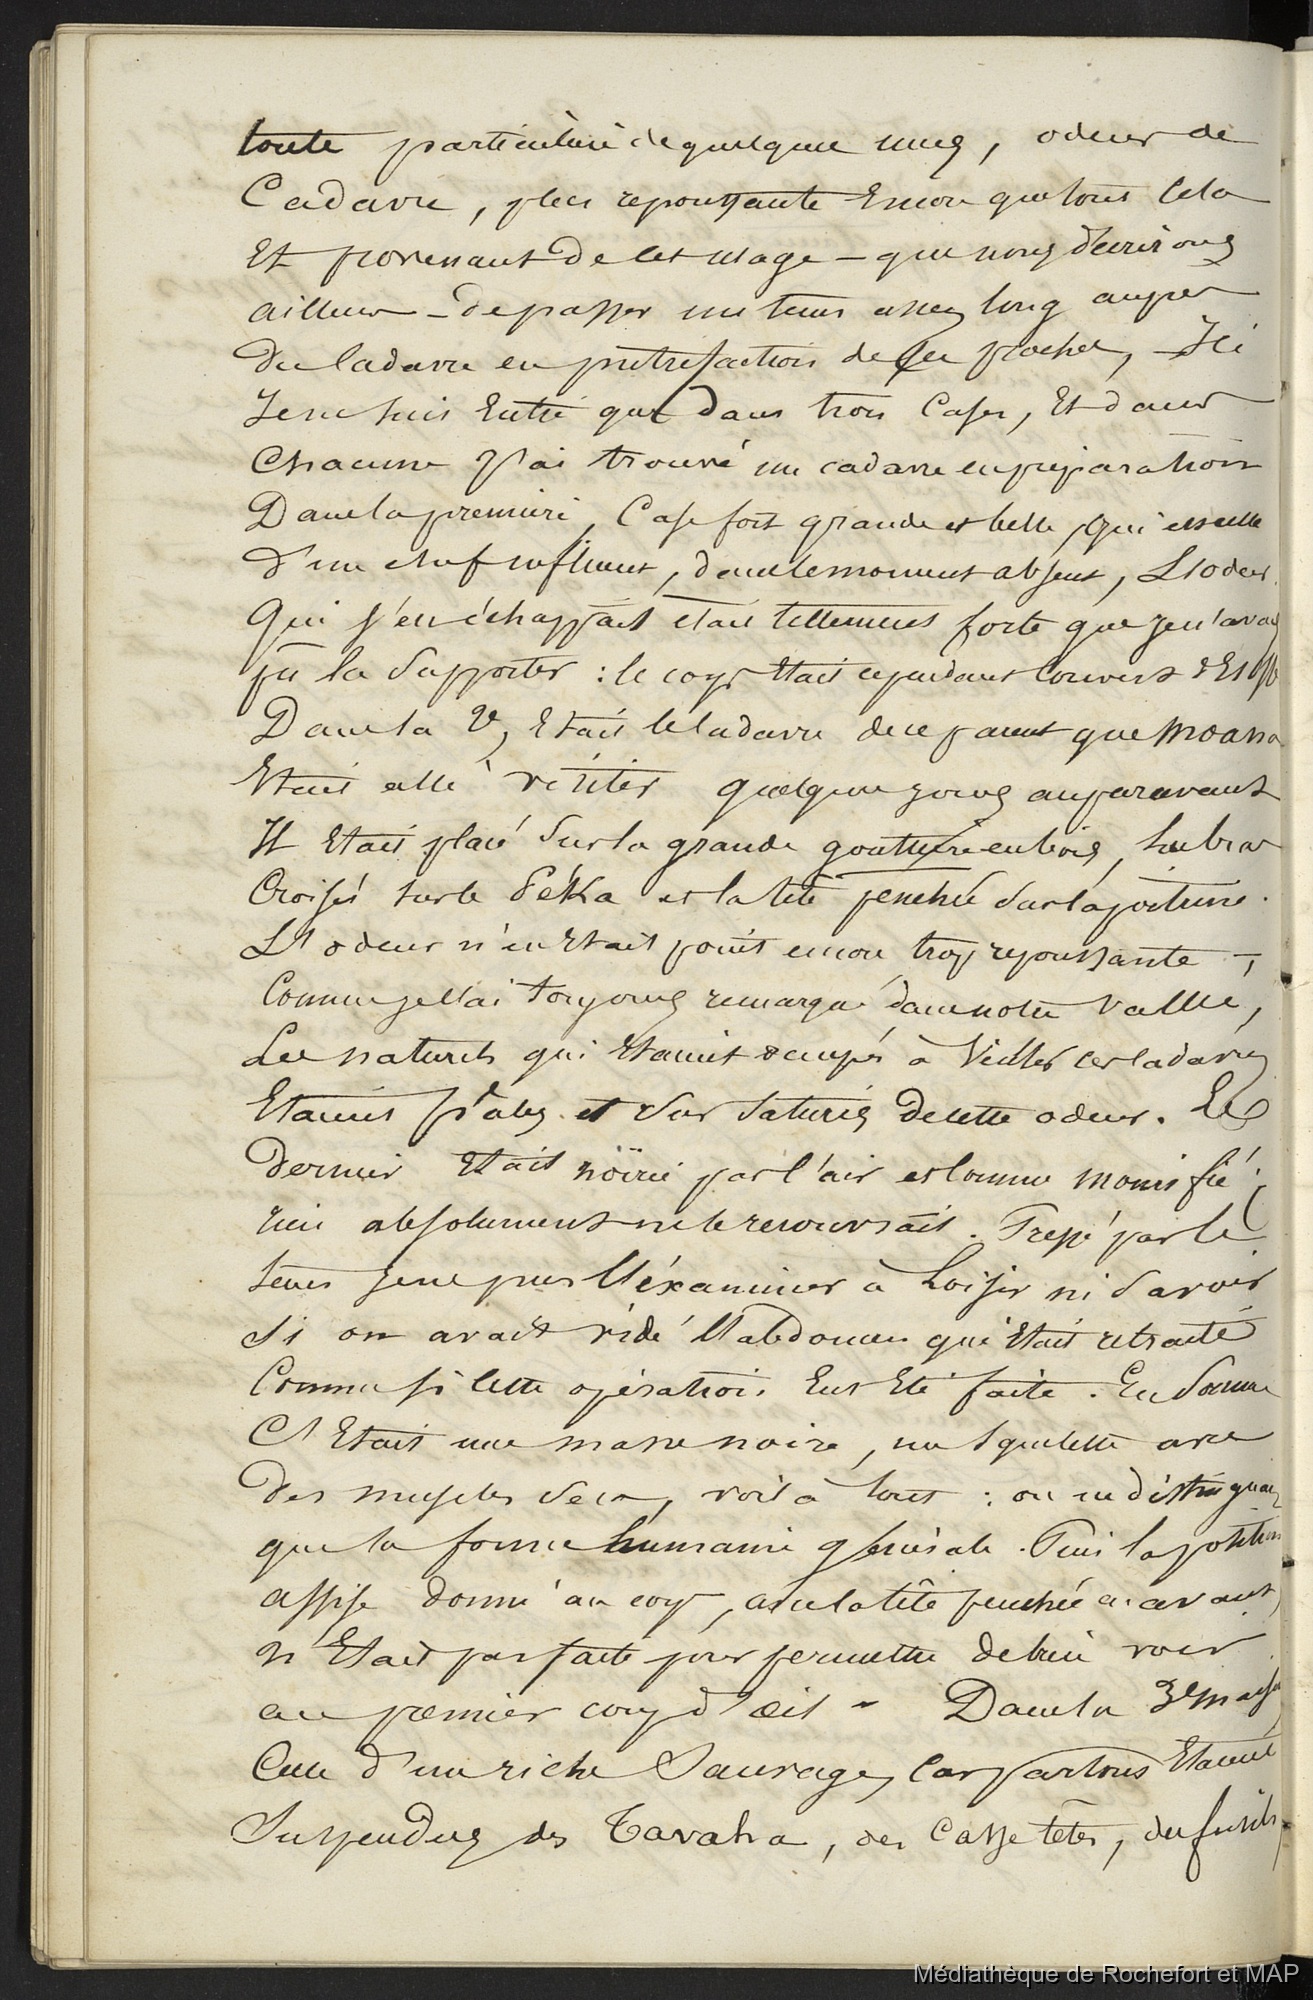 toute particulière de quelques uns, odeur de
Cadavre, plus repoussante Encore que tout Cela
Et provenant De cet usage – que nous décrirons
ailleurs – De passer un tems assez long auprès
Du Cadavre en putréfaction de ses proches, – Ici
Je ne suis Entré que dans trois Cases, Et dans
Chacune J'ai trouvé un cadavre en préparation
Dans la première, Case fort grande et belle, qui est celle
D'un chef influent, dans le moment absent, L'odeur
Qui s'en échappait était tellement forte que je n'avais
pu la Supporter : le corps Etait cependant Couvert
Dans la 2e, Etait le Cadavre de ce parent que Moana
Etait allé visiter quelques jours auparavant
Il Etait placé Sur la grande gouttière en bois, les bras
Croisés sur le Péka et la tête penchée Sur la poitrine.
L'odeur n'en Etait point encore trop repoussante –,
Comme je l'ai toujours remarqué dans notre Vallée,
Les naturels qui Etaient occupés à Veiller ces Cadavres
Etaient pâles et Sursaturés De cette odeur. Ce
Dernier Etait noirci par l'air et comme momifié ;
rien absolument ne le recouvrait. Pressé par le
tems Je ne pus l'éxaminer à Loisir ni Savoir
Si on avait vidé l'abdomen qui Etait rétracté
Comme si Cette opération Eut Eté faite. En Somme
C'Etait une masse noire, un squelette avec
Des muscles Secs, voilà tout : on ne distinguait
que la forme humaine générale. Puis la position
assise donné au corps, avec la tête penchée en avant,
N'Etait pas faite pour permettre de bien voir
au premier coup d'œil – Dans la 3e maison
Celle d'un riche Sauvage, Car partout Etaient
Suspendus des Tavaha, des Casse têtes, des fusils,
Médiathèque de Rochefort et MAP